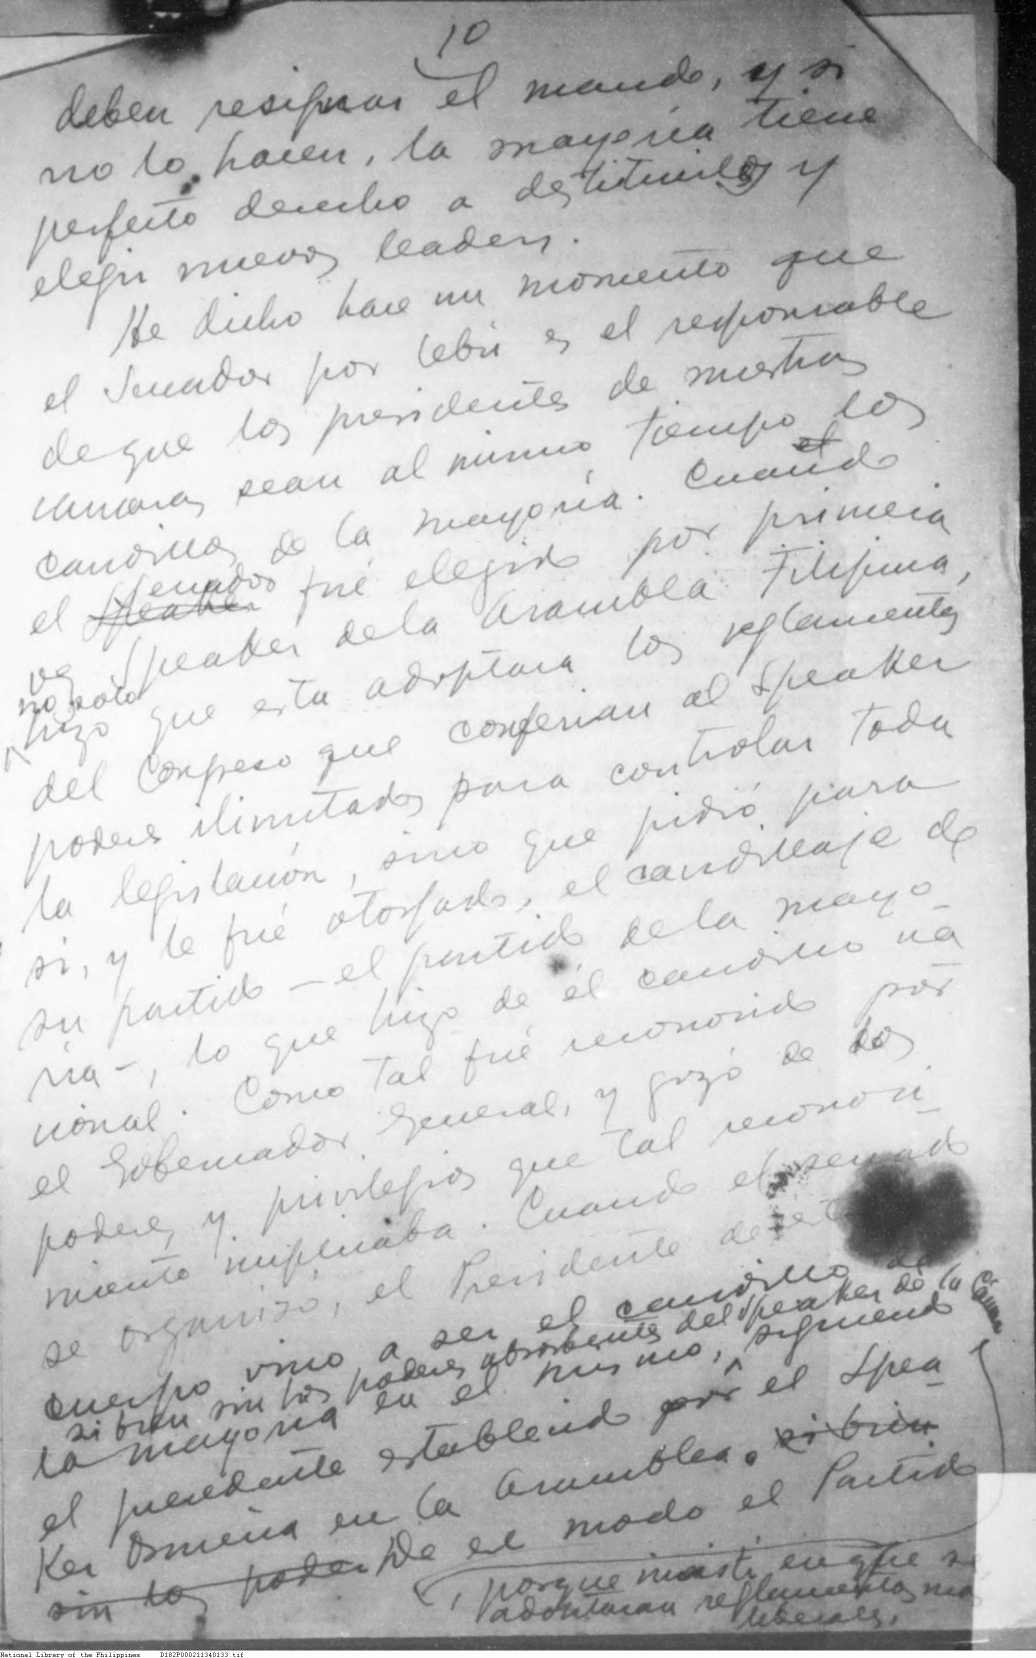 10
deben resignar el mando, y si
no lo hacen, la mayoría tiene
perfecto derecho a destituirlos y
elegir nuevos leaders.
He dicho hace un momento que
el Senador por Cebú es el responsable
de que los presidentes de nuestras
cámaras sean al mismo tiempo los
caudillos de la mayoría. Cuando
el
el Speaker Senador fué elegido por primera
vez Speaker de la Asamblea Filipina,
no solo
hizo que esta adoptara los reglamentos
del Congreso que conferian al Speaker
poderes ilimitados para controlar toda
la legislación, sino que pidió para
si, y le fué otorgado, el caudillaje de
su partido — el partido de la mayo-
ria —, lo que hizo de él el caudillo na
cional. Como tal fué reconocido por
el Gobernador General, y gozó de los
poderes y privilegios que tal reconoci-
miento implicaba. Cuando el senado
se organizó, el Presidente de este
cuerpo vino a ser el caudillo de
si bien sin los poderes absorbentes del Speaker de la Cámara
la mayoria en el mismo, siguiendo
el precedente establecido por el Spea-
ker Osmeña en la Asamblea. si bien
sin los poderes De ese modo el Partido
, porque insistí en que se
adoptaran reglamentos mas
liberales.
National Library of the Philippines D182P000211340133.tif